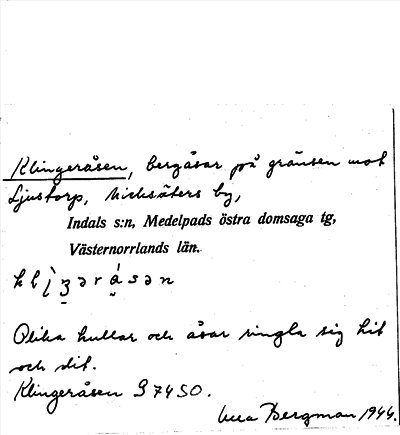 Klingeråsen, bergåsar på gränsen mot
Ljustorp, Nicksäters by,
Indals s:n, Medelpads östra domsaga tg,
Västernorrlands län.
Olika kullar och åsar ringla sig hit
och dit.
Klingeråsen S 74 SO.
Bergman 1944.